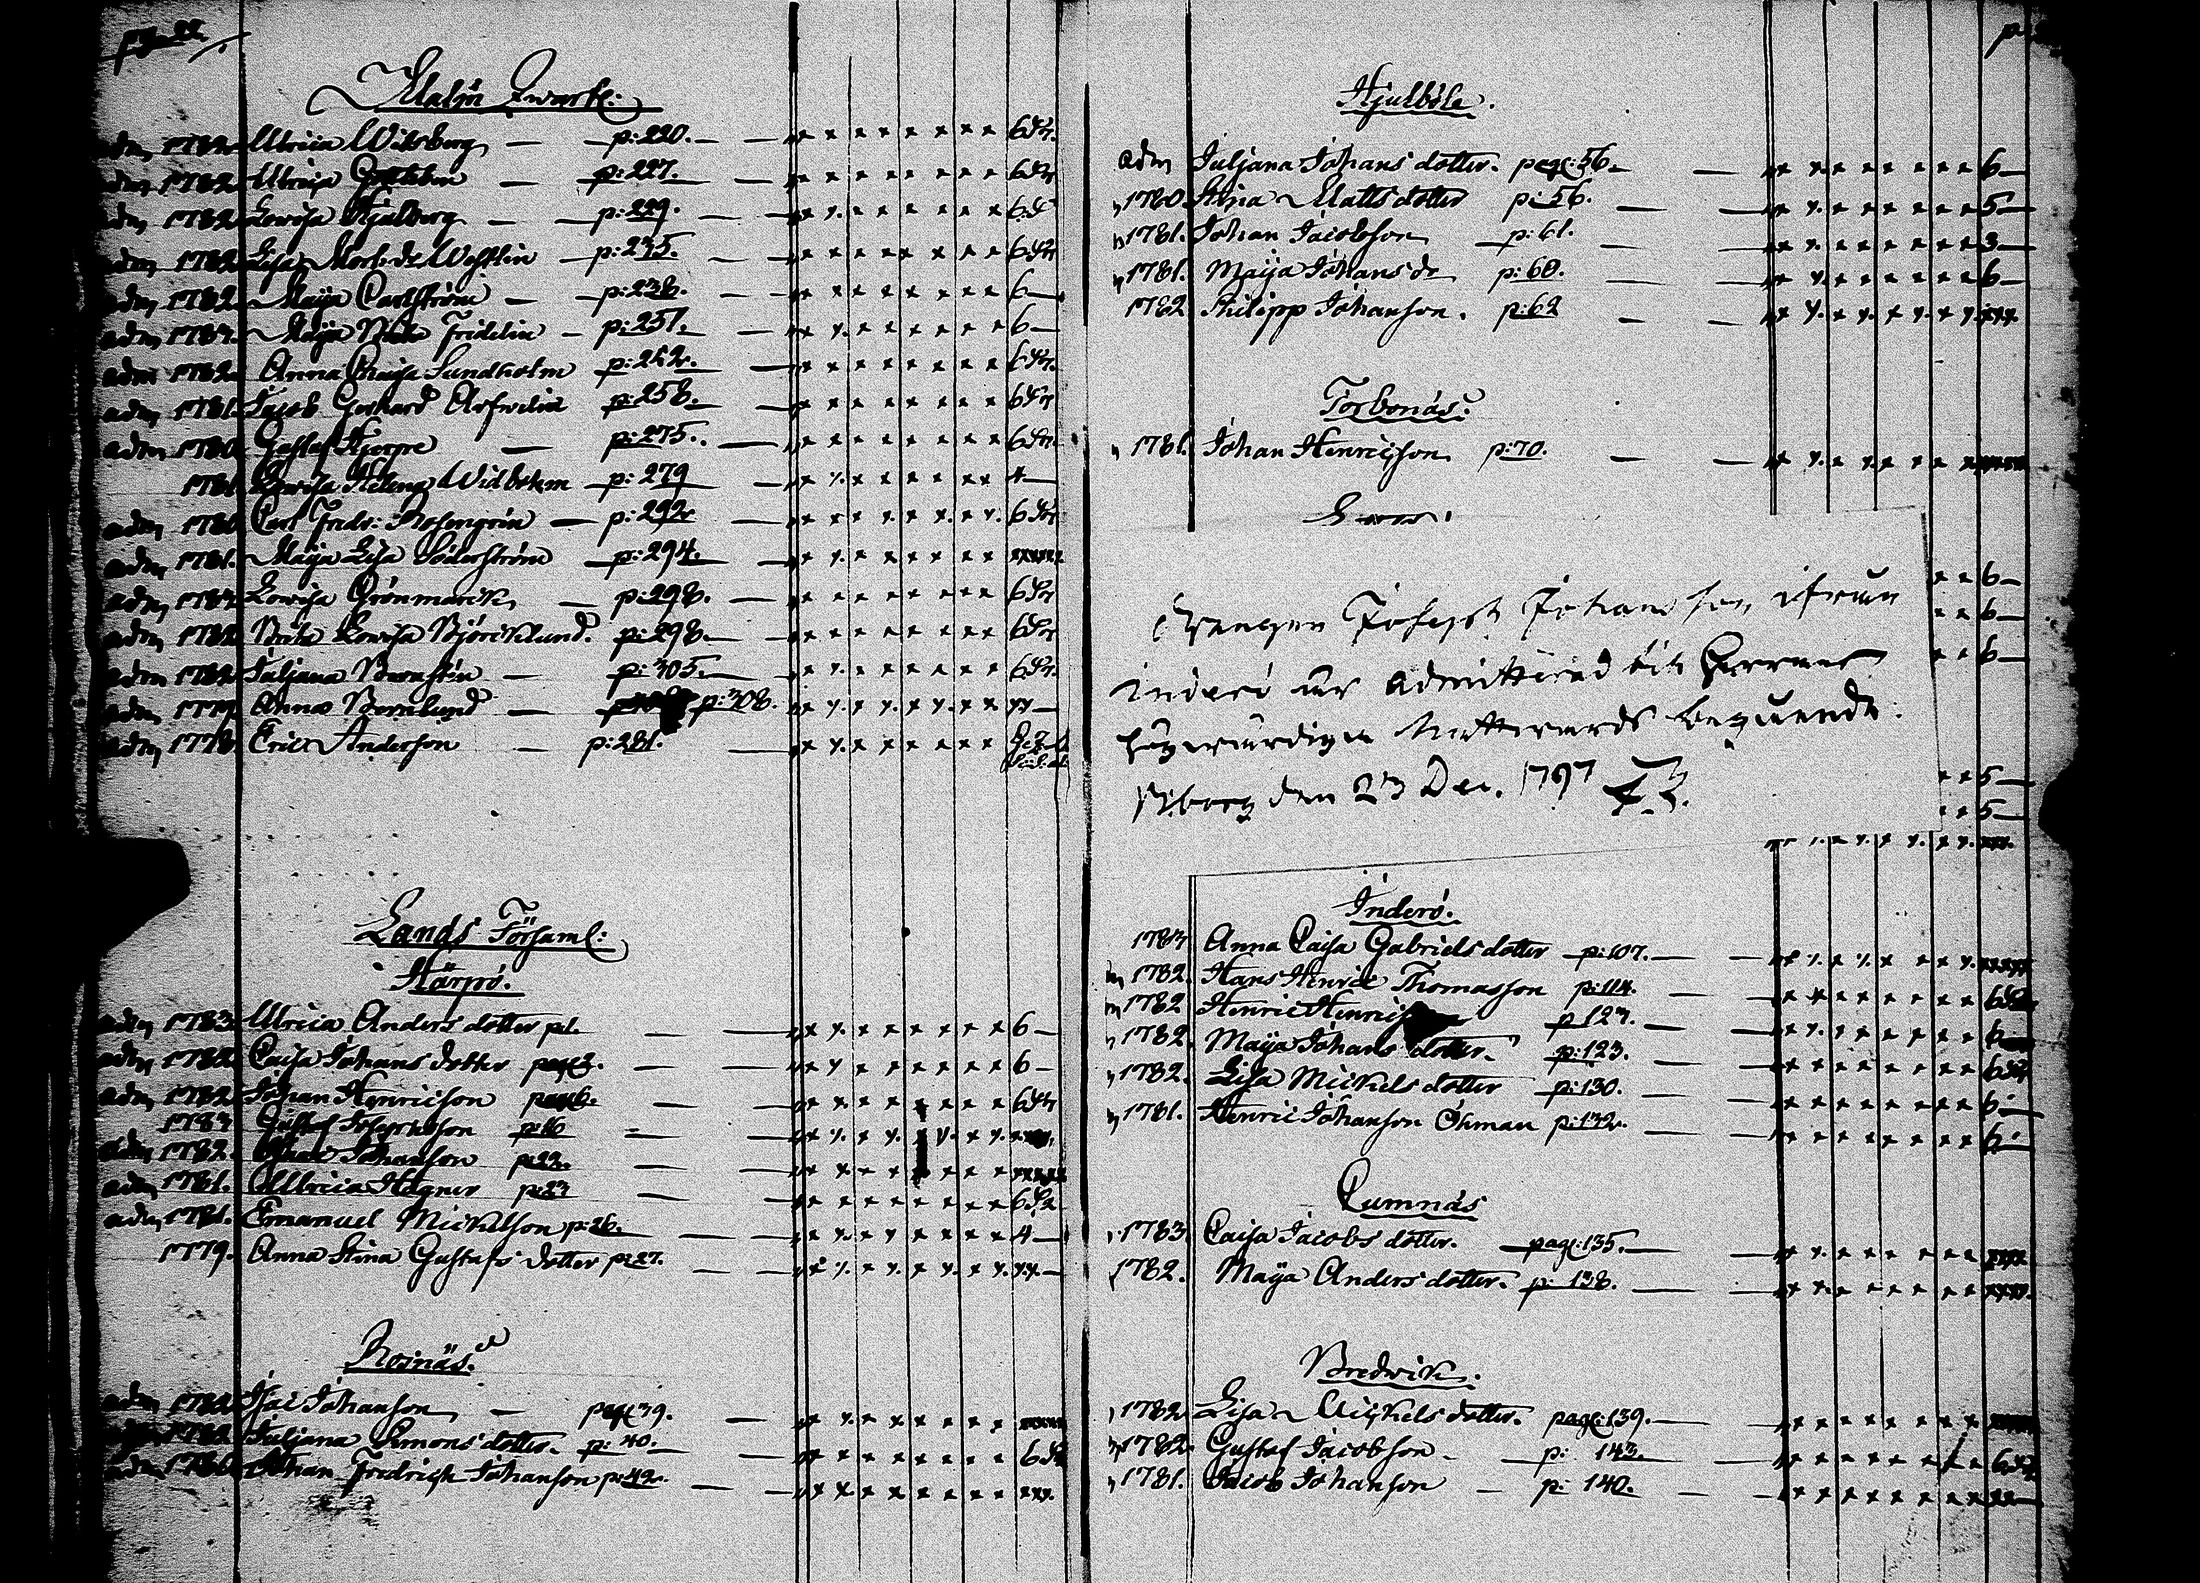 Malm Qwarte:
adm 1782 Ulrica Widberg p: 220. 6
adm 1782 Ulrica p: 227. 6
adm 1782 Lowisa Hjulberg p: 229. 6
adm 1782 Lisa Westlin p: 235. 6
adm 1782 Maija Carlström p: 238. 6
adm Maija Fridelin p: 251. 6
adm 1782 Anna Caisa Sundholm p: 252. 6
adm 1781 Jacob Gerhard Arfwelin p: 258. 6
adm 1780 Gustaf Hjerpe p: 275. 6
1781 Lowisa Helena Widbohm p: 279 4
adm 1780 Carl Fredr: Rosengrén p: 292 6
adm 1781. Maija Lisa Söderström p: 294.
adm Lowisa Grönmarck p: 298. 6
adm 1782 Brita Lowisa Björcklund. p: 298. 6
adm 1782 Juljana Bernstén p: 305. 6
adm 1777 Anna Bernlund p: 308.
adm 1778 Eric Anderson p: 281.
Lands Församl:
Härpö.
adm 1783 Ulrica Anders dotter p:1. 6
adm 1782 Caisa Johans dotter page 3. 6
adm 1782 Johan Henricson page 6. 6
1783 Gustaf p:16
adm 1782. Johanson p:22.
adm 1781. Ulrica Hagner p:23 6
adm 1781. Emanuel Mickelson p:26. 4
1779. Anna Stina Gustafs dotter p:27.
Roinäs.
adm 1782 Isac Johanson page 39.
1782 Juljana Simons dotter. p: 40. 6
adm Johan Fredrich Johanson p:42.
Hjulböle.
adm Juljana Johans dotter. page: 56. 6
1780. Stina Matts dotter p: 56. 5
1781. Johan Jacobson p: 61. 3
1781. Maija Johans dr p: 60. 6
1782 Philipp Johanson. p: 62
Torbonäs.
1781. Johan Henricson p: 70.
6
Drengen Joseph Johanson ifrån 6
Inderö är admitterad till Herrans 6
högwürdiga Nattwards begående. 5
Wiborg den 23 Dec. 1797 5
Inderö.
1783 Anna Caisa Gabriels dotter p: 107.
1782. Hans Henric Thomasson p: 114. 6
1782 Henric Henric p 123. 6
1782. Maija Johans dotter. p: 123. 6
1782. Lisa Mickels dotter p: 130. 6
1781. Henric Johanson Öhman p: 132. 6
Cumnäs
1783 Caisa Jacobs dotter. page: 135.
1782. Maija Anders dotter. p: 138.
Bredwik.
1782. Lisa Mickels dotter. page: 139.
1782. Gustaf Jacobson p: 143. 6
1781. Jacob Johanson p: 140.